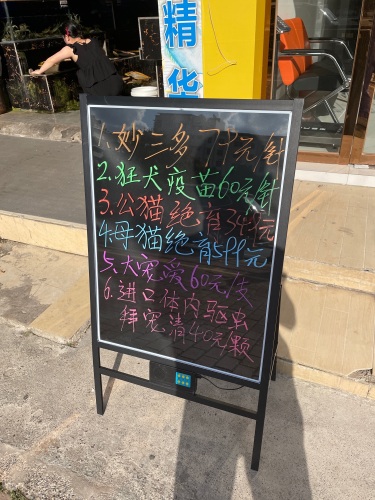 精华
1.妙三多79元/针
2.狂犬疫苗60元/针
3.公猫绝育399元
4.母猫绝育599元
5.大宠爱60元/支
6.进口体内驱虫
拜宠清40元/颗